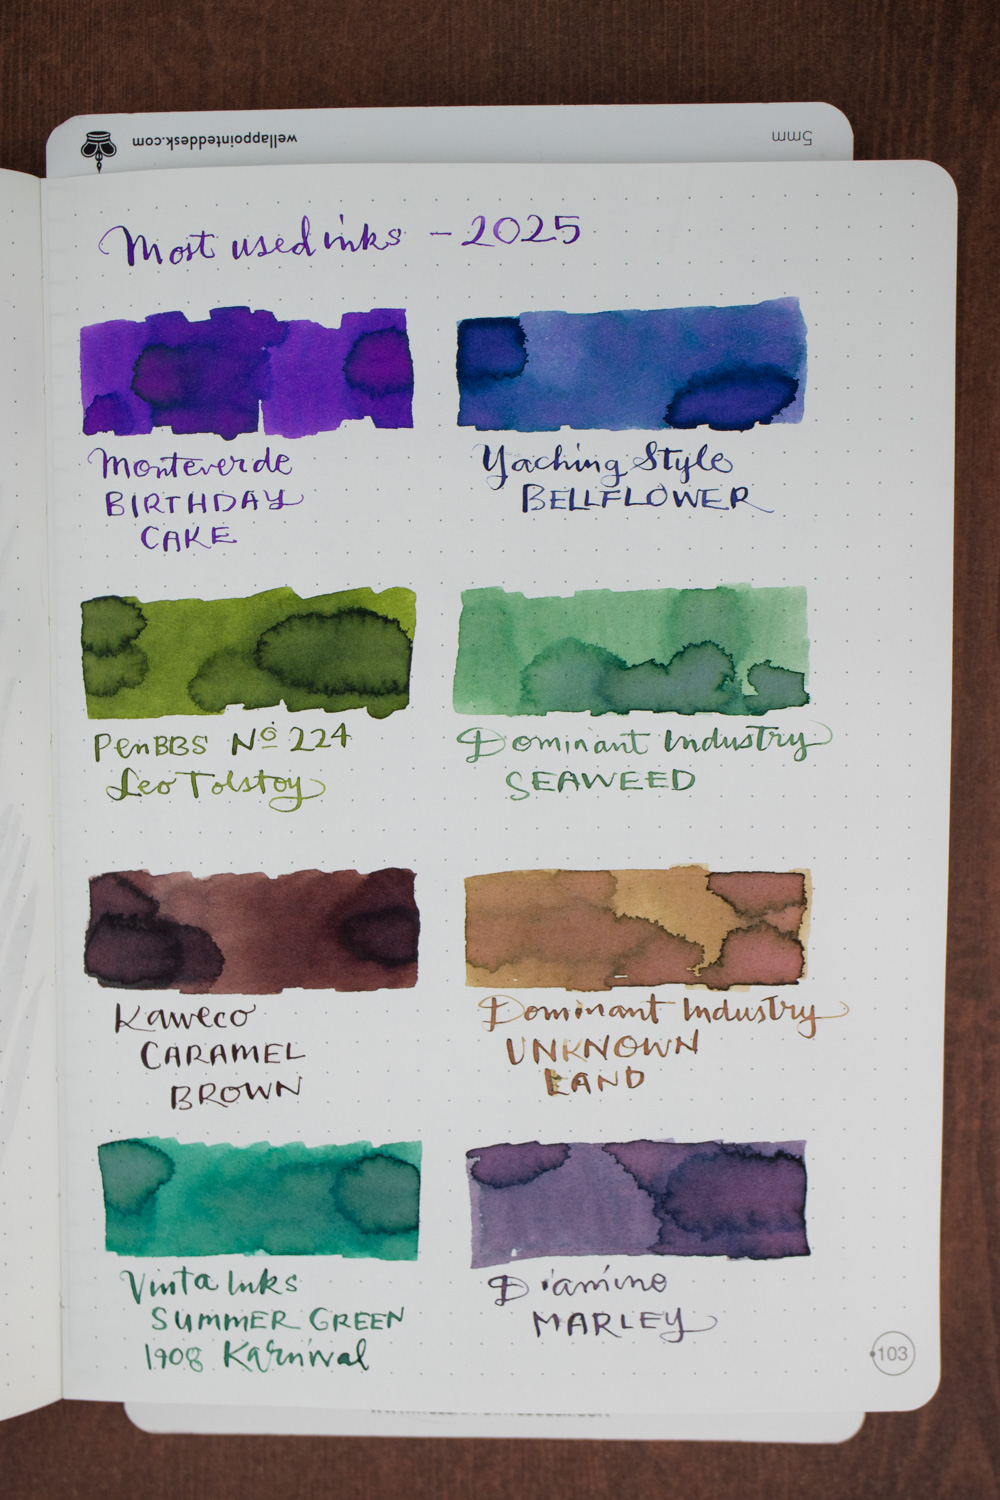 wellappointeddesk.com
5mm
Most used inks - 2025
Monteverde
BIRTHDAY
CAKE
Yaching Style
BELLFLOWER
PenBBS Nº 224
Leo Tolstoy
Dominant Industry
SEAWEED
Kaweco
CARAMEL
BROWN
Dominant Industry
UNKNOWN
LAND
Vinta Inks
SUMMER GREEN
1908 Karnival
Diamine
MARLEY
103